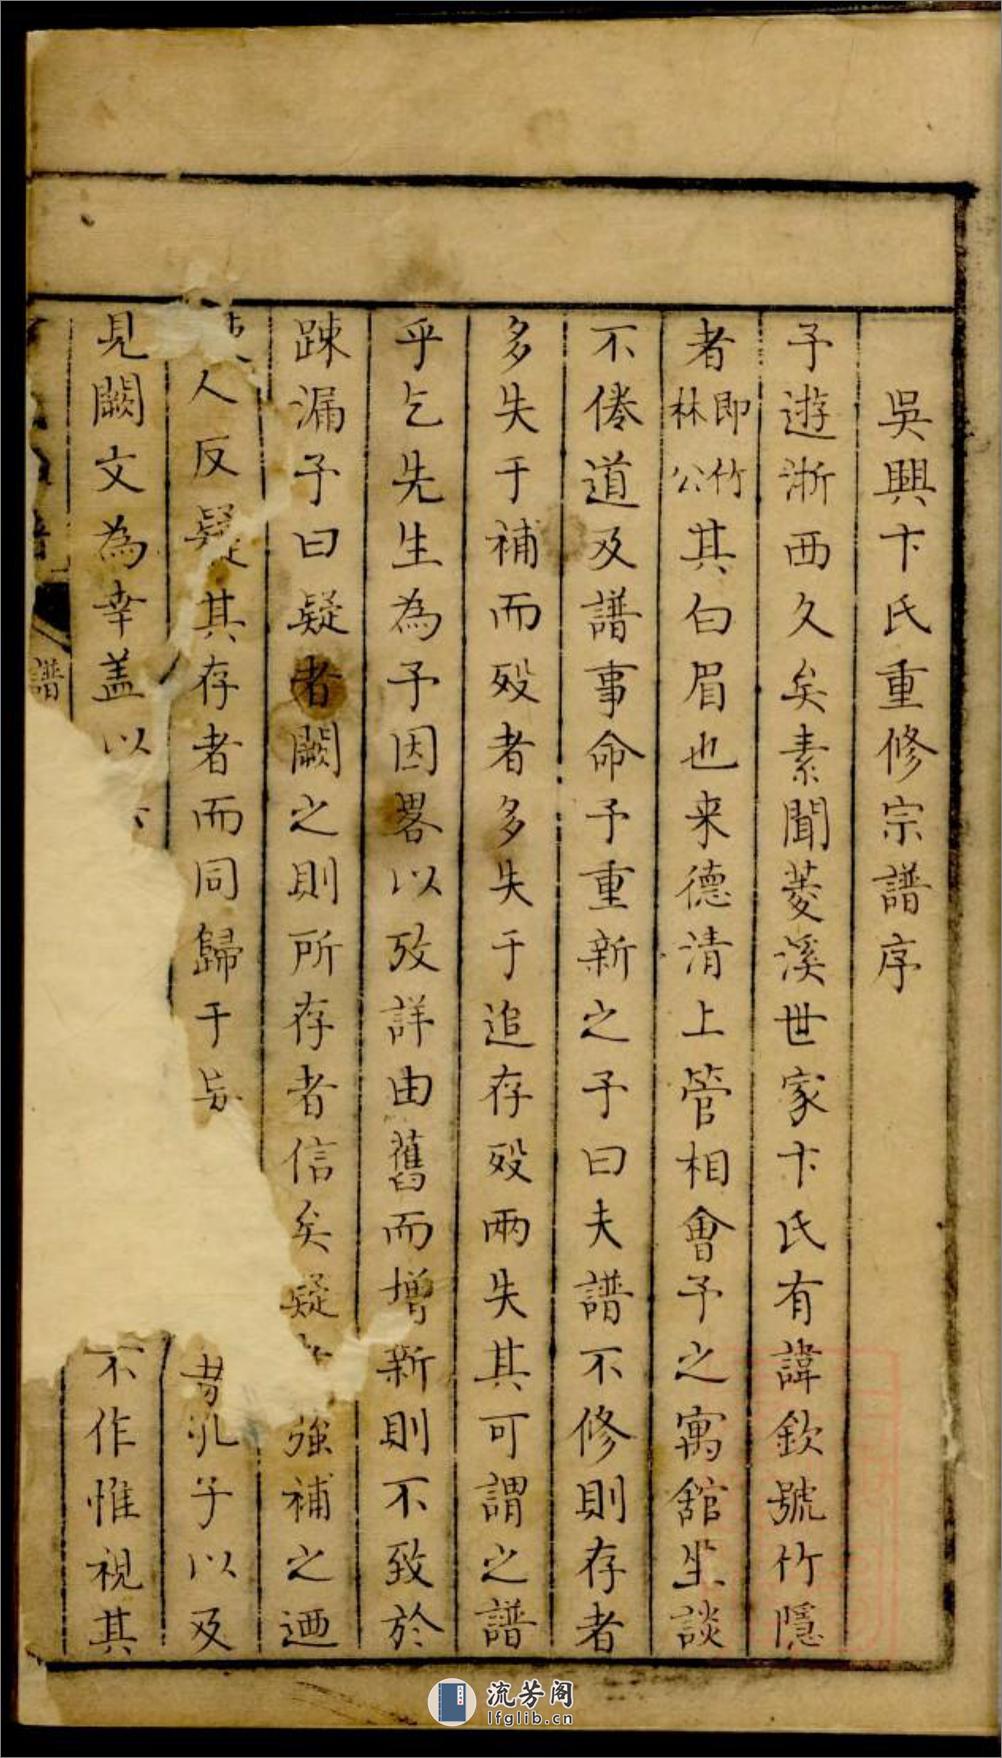 吳興卞氏重修宗譜序
予遊浙西久矣素聞菱溪世家卞氏有諱欽號竹隱
者即竹林公其白眉也来德清上管相會予之寓舘坐談
不倦道及譜事命予重新之予曰夫譜不修則存者
多失于補而殁者多失于追存殁兩失其可謂之譜
乎乞先生為予因畧以攷詳由舊而增新則不致於
踈漏予曰疑者闕之則所存者信矣疑強補之廼
人反疑其存者而同歸于妄昔孔子以及
見闕文為幸盖以不作惟視其
譜
流芳阁
lfglib.cn